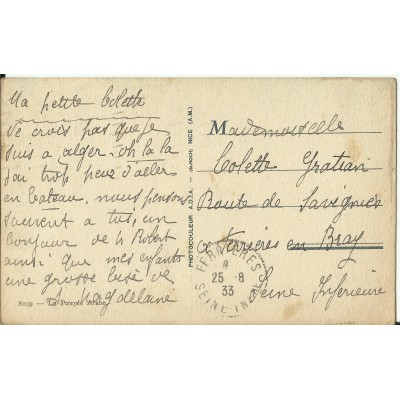 Ma petite Colette
Ne crois pas que je
suis a alger - oh la la
j'ai trop peur d'aller
en bateau, nous pensons
souvent a toi, un
bonjour de H Robert
ainsi que mes enfants
une grosse bise de
Magdelaine
80159 — La Poupée Arabe
PHOTOCOULEUR A.D.I.A. - NICE (A.M.)
Mademoiselle
Colette Gratian
Route de Savignies
a Ferrières en Bray
Seine Inférieure
FERRIERES
25-8
33
SEINE-INFRE